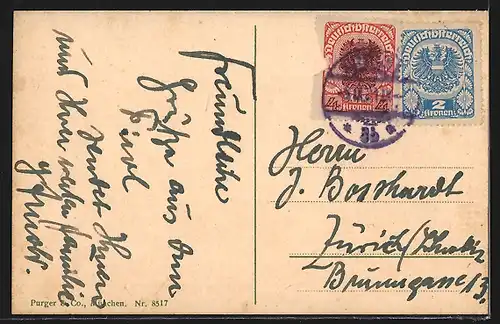 Freundliche
Grüße aus dem
Tirol
sendet Ihnen
und Ihrer werten Familie
Deutschösterreich
Kronen
Deutschösterreich
2
Kronen
Herrn
J. Bosshardt
Zürich/Schweiz
Brunngasse 13.
Purger & Co., München. Nr. 8517